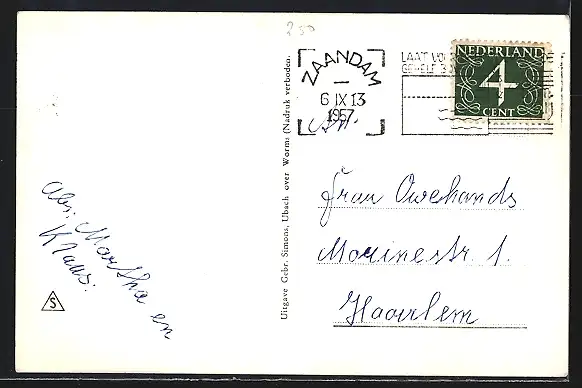 250
ZAANDAM
6 IX 13
1957
LAAT VO
GEHELE
NEDERLAND
4
CENT
Abs: Martha en
Klaus.
S
Uitgave Gebr. Simons, Ubach over Worms (Nadruk verboden.
Frau Owehands
Morinestr 1.
Haarlem